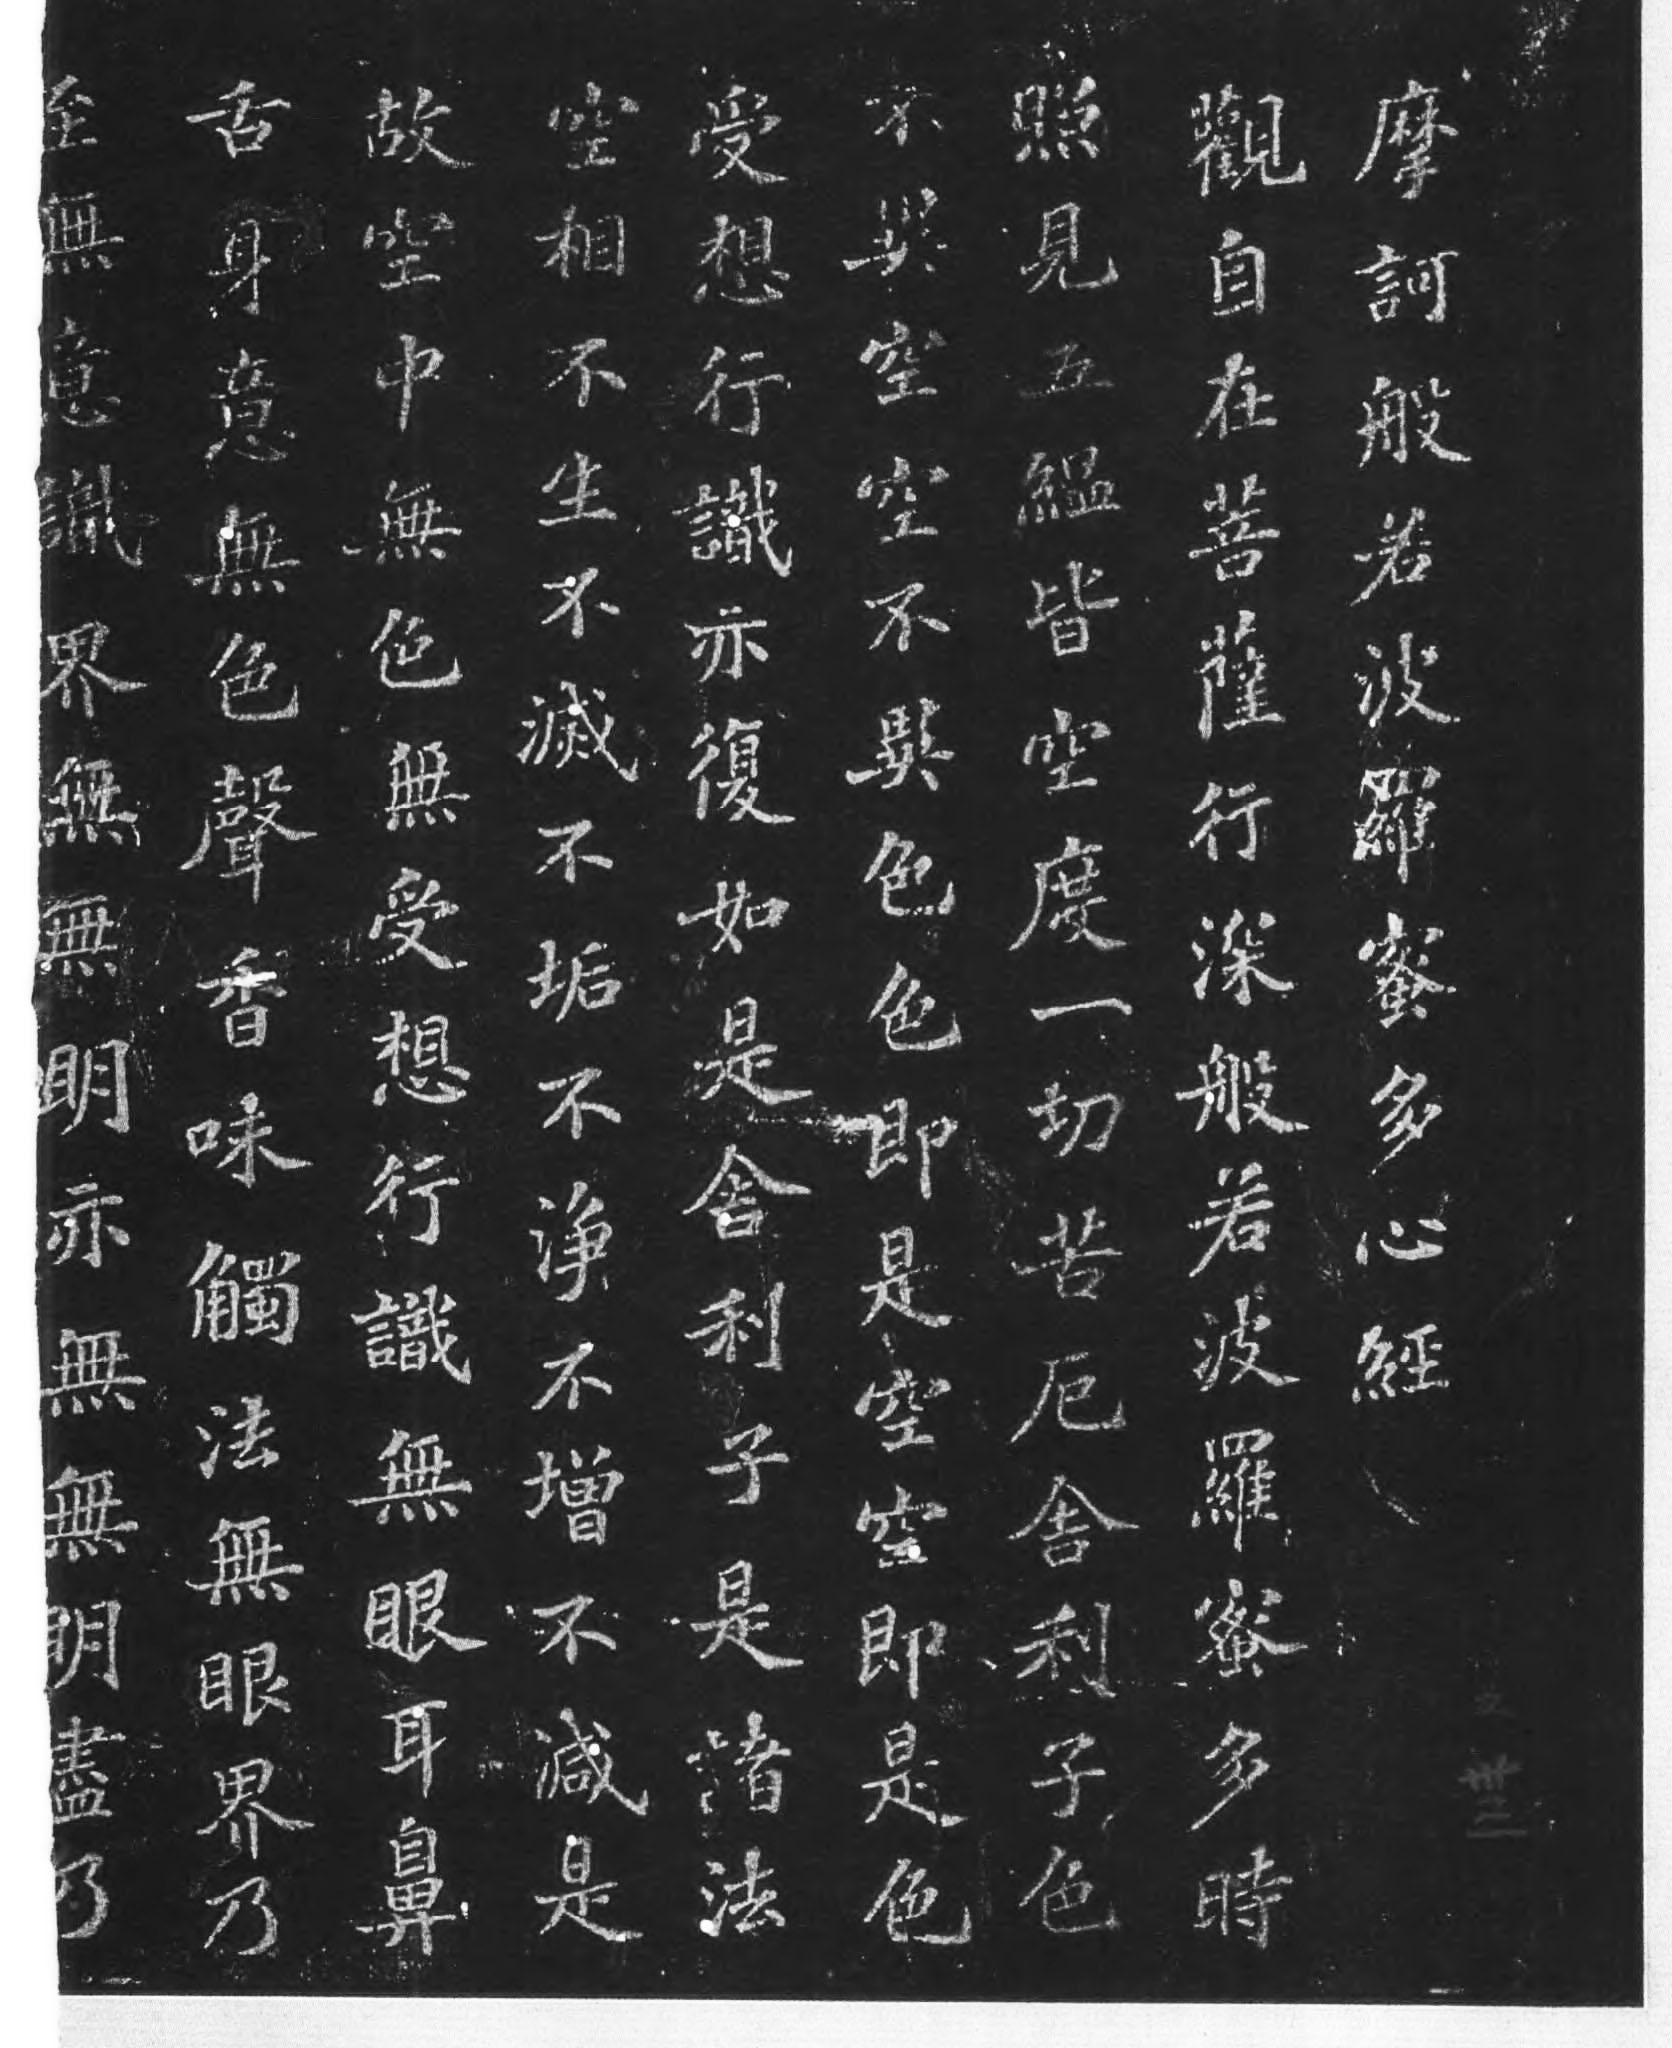 摩訶般若波羅蜜多心經
觀自在菩薩行深般若波羅蜜多時
照見五蘊皆空度一切苦厄舍利子色
不異空空不異色色即是空空即是色
受想行識亦復如是舍利子是諸法
空相不生不滅不垢不淨不增不減是
故空中無色無受想行識無眼耳鼻
舌身意無色聲香味觸法無眼界乃
至無意識界無無明亦無無明盡乃
卌二